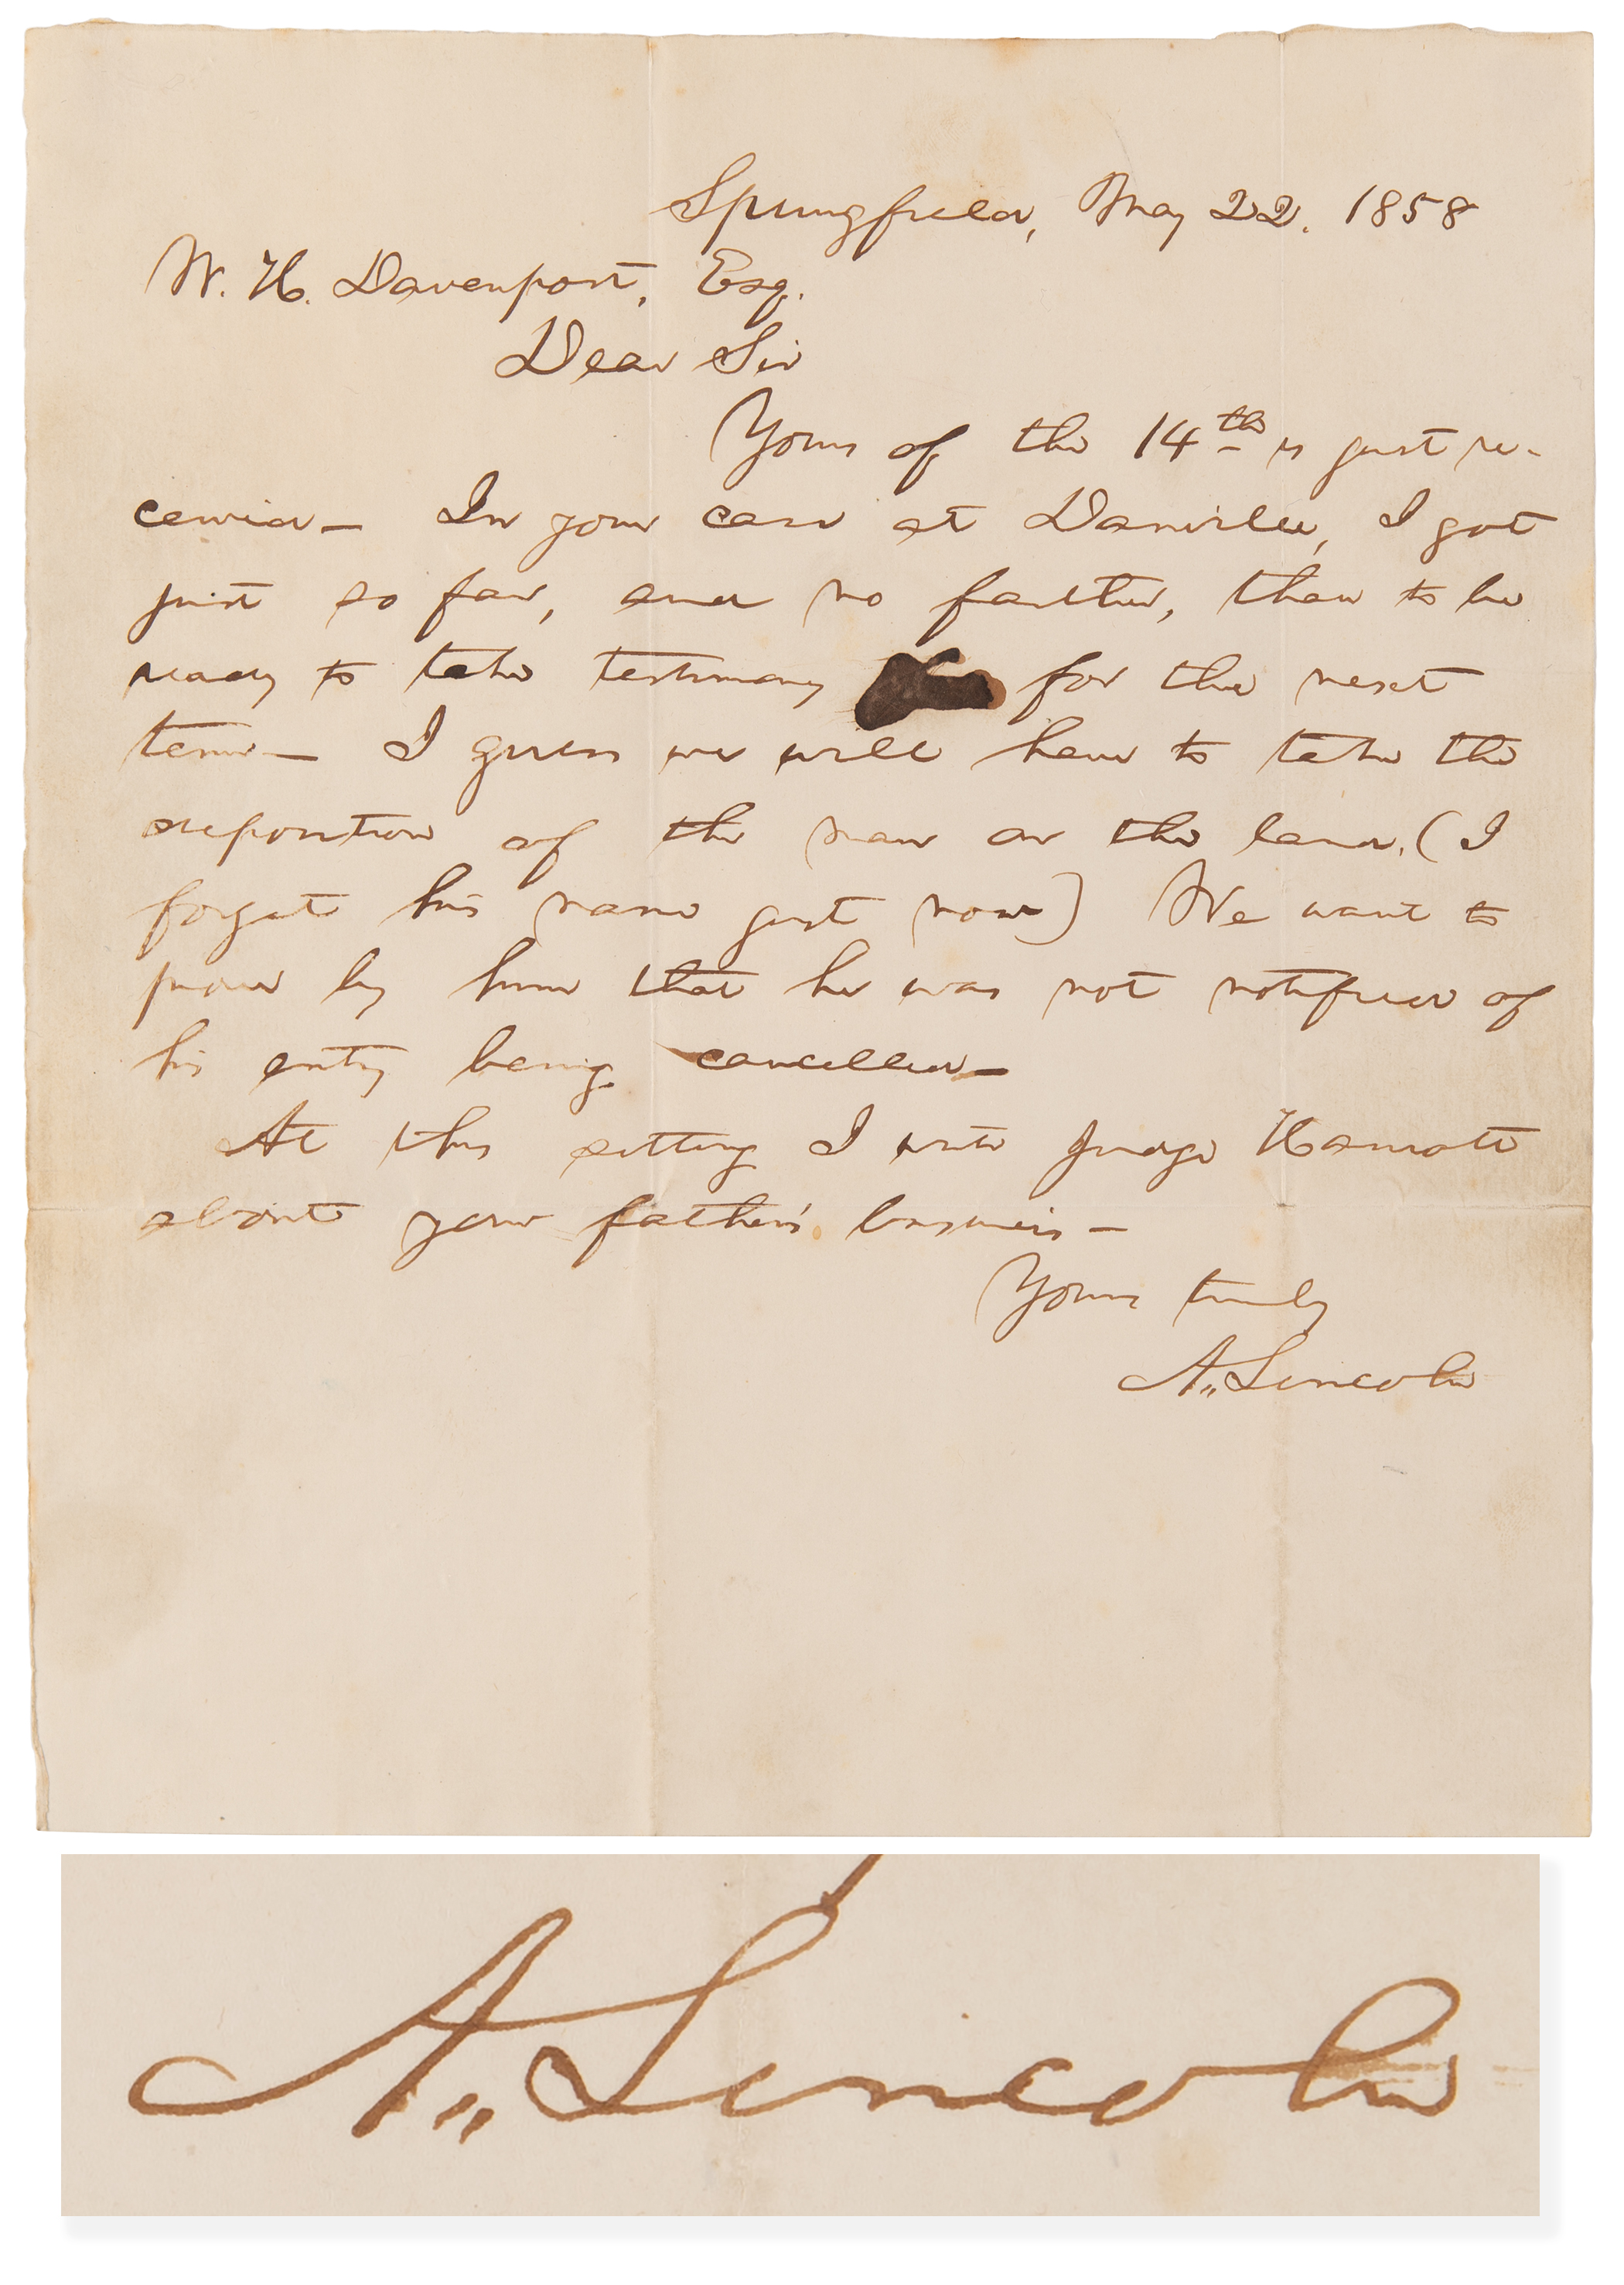 Springfield, May 22. 1858
W. H. Davenport, Esq.
Dear Sir
Yours of the 14th is just re-
ceived — In your case at Danville, I got
just so far, and no farther, than to be
ready to take testimony for the next
term — I guess we will have to take the
deposition of the man on the land. (I
forget his name just now) We want to
prove by him that he was not notified of
his entry being cancelled —
At this sitting I write Judge
about your father's business —
Yours truly
A. Lincoln
A. Lincoln